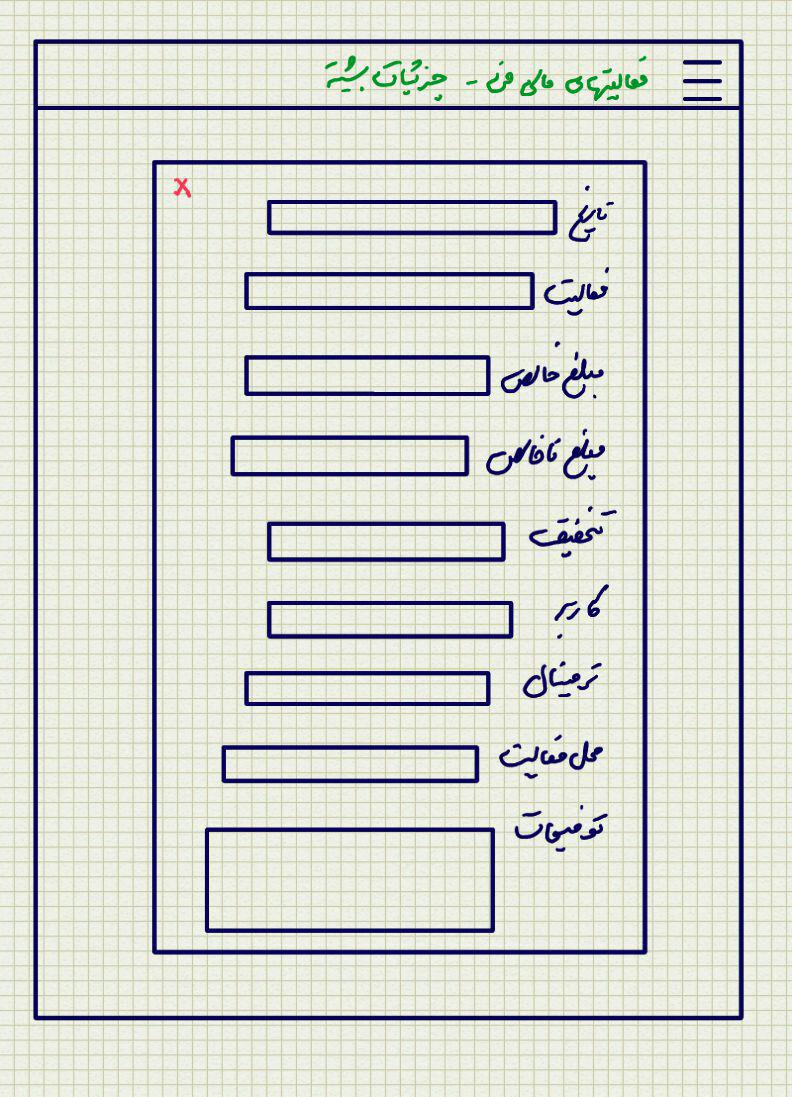 فعالیتهای مالی فرنی - جزئیات بیشتر
x
تاریخ
فعالیت
مبلغ خالص
مبلغ ناخالص
تخفیف
کاربر
ترمینال
محل فعالیت
توضیحات